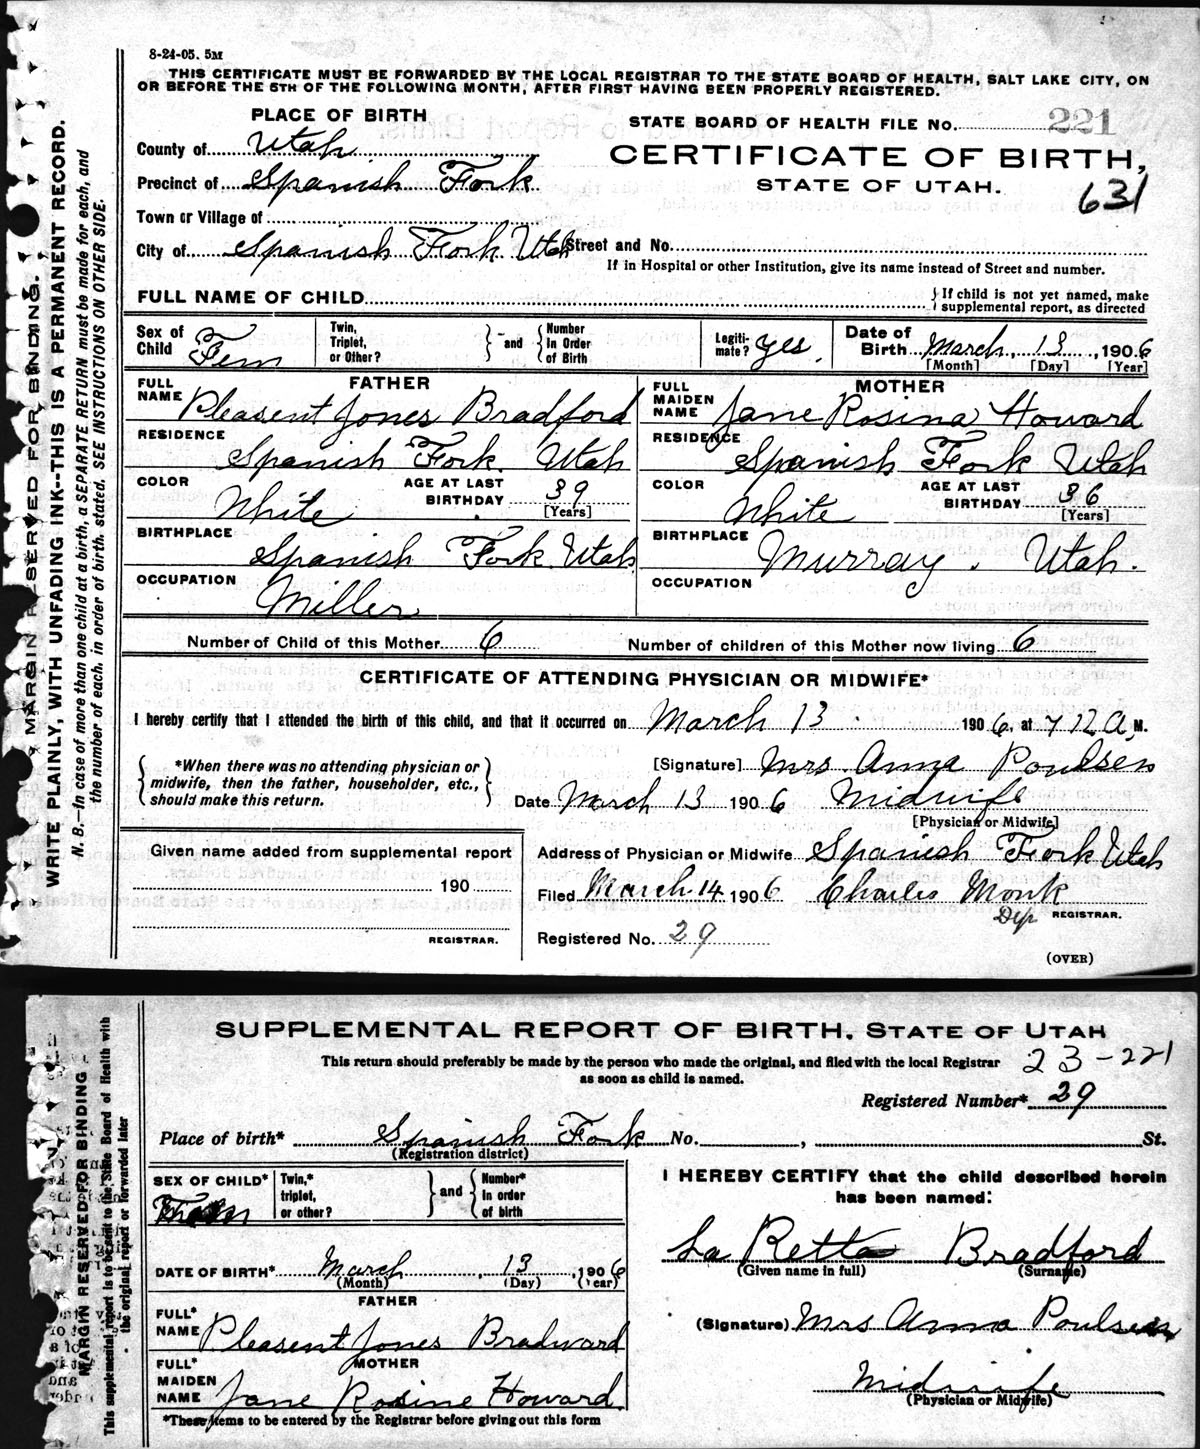 8-24-05. 5M
THIS CERTIFICATE MUST BE FORWARDED BY THE LOCAL REGISTRAR TO THE STATE BOARD OF HEALTH, SALT LAKE CITY, ON
OR BEFORE THE 5TH OF THE FOLLOWING MONTH, AFTER FIRST HAVING BEEN PROPERLY REGISTERED.
PLACE OF BIRTH
STATE BOARD OF HEALTH FILE No. 221
County of Utah
CERTIFICATE OF BIRTH,
Precinct of Spanish Fork
STATE OF UTAH.
631
Town or Village of
City of Spanish Fork Utah Street and No.
If in Hospital or other Institution, give its name instead of Street and number.
FULL NAME OF CHILD
If child is not yet named, make
supplemental report, as directed
Sex of Child Fem
Twin, Triplet, or Other?
and
Number in Order of Birth
Legiti-mate? Yes.
Date of Birth March, 13, 1906
[Month] [Day] [Year]
FATHER
FULL NAME Pleasent Jones Bradford
RESIDENCE
Spanish Fork. Utah
COLOR White
AGE AT LAST BIRTHDAY 39 [Years]
BIRTHPLACE
Spanish Fork. Utah
OCCUPATION
Miller
MOTHER
FULL MAIDEN NAME Jane Rosina Howard
RESIDENCE
Spanish Fork Utah
COLOR White
AGE AT LAST BIRTHDAY 36 [Years]
BIRTHPLACE Murray. Utah.
OCCUPATION
Number of Child of this Mother 6
Number of children of this Mother now living 6
CERTIFICATE OF ATTENDING PHYSICIAN OR MIDWIFE*
I hereby certify that I attended the birth of this child, and that it occurred on March 13. 1906, at 7 12 A, M.
*When there was no attending physician or
midwife, then the father, householder, etc.,
should make this return.
[Signature] Mrs. Anna Poulsen
Date March 13 1906 Midwife
[Physician or Midwife]
Given name added from supplemental report
190
REGISTRAR.
Address of Physician or Midwife Spanish Fork Utah
Filed March 14 1906 Charles Monk
Dep REGISTRAR.
Registered No. 29
(OVER)
MARGIN RESERVED FOR BINDING.
WRITE PLAINLY, WITH UNFADING INK--THIS IS A PERMANENT RECORD.
N. B.—In case of more than one child at a birth, a SEPARATE RETURN must be made for each, and
the number of each, in order of birth, stated. SEE INSTRUCTIONS ON OTHER SIDE.
SUPPLEMENTAL REPORT OF BIRTH, STATE OF UTAH
This return should preferably be made by the person who made the original, and filed with the local Registrar
as soon as child is named.
23-221
Registered Number* 29
Place of birth* Spanish Fork No. , St.
(Registration district)
SEX OF CHILD*
Twin,* triplet, or other?
and
Number* in order of birth
DATE OF BIRTH* March, 13, 1906
(Month) (Day) (Year)
FATHER
FULL* NAME Pleasent Jones Bradward
MOTHER
FULL* MAIDEN NAME Jane Rosine Howard.
*These items to be entered by the Registrar before giving out this form
I HEREBY CERTIFY that the child described herein
has been named:
La Retta Bradford
(Given name in full) (Surname)
(Signature) Mrs Anna Poulsen
Midwife
(Physician or Midwife)
MARGIN RESERVED FOR BINDING
This supplemental report is to be sent to the State Board of Health with
the original report or forwarded later